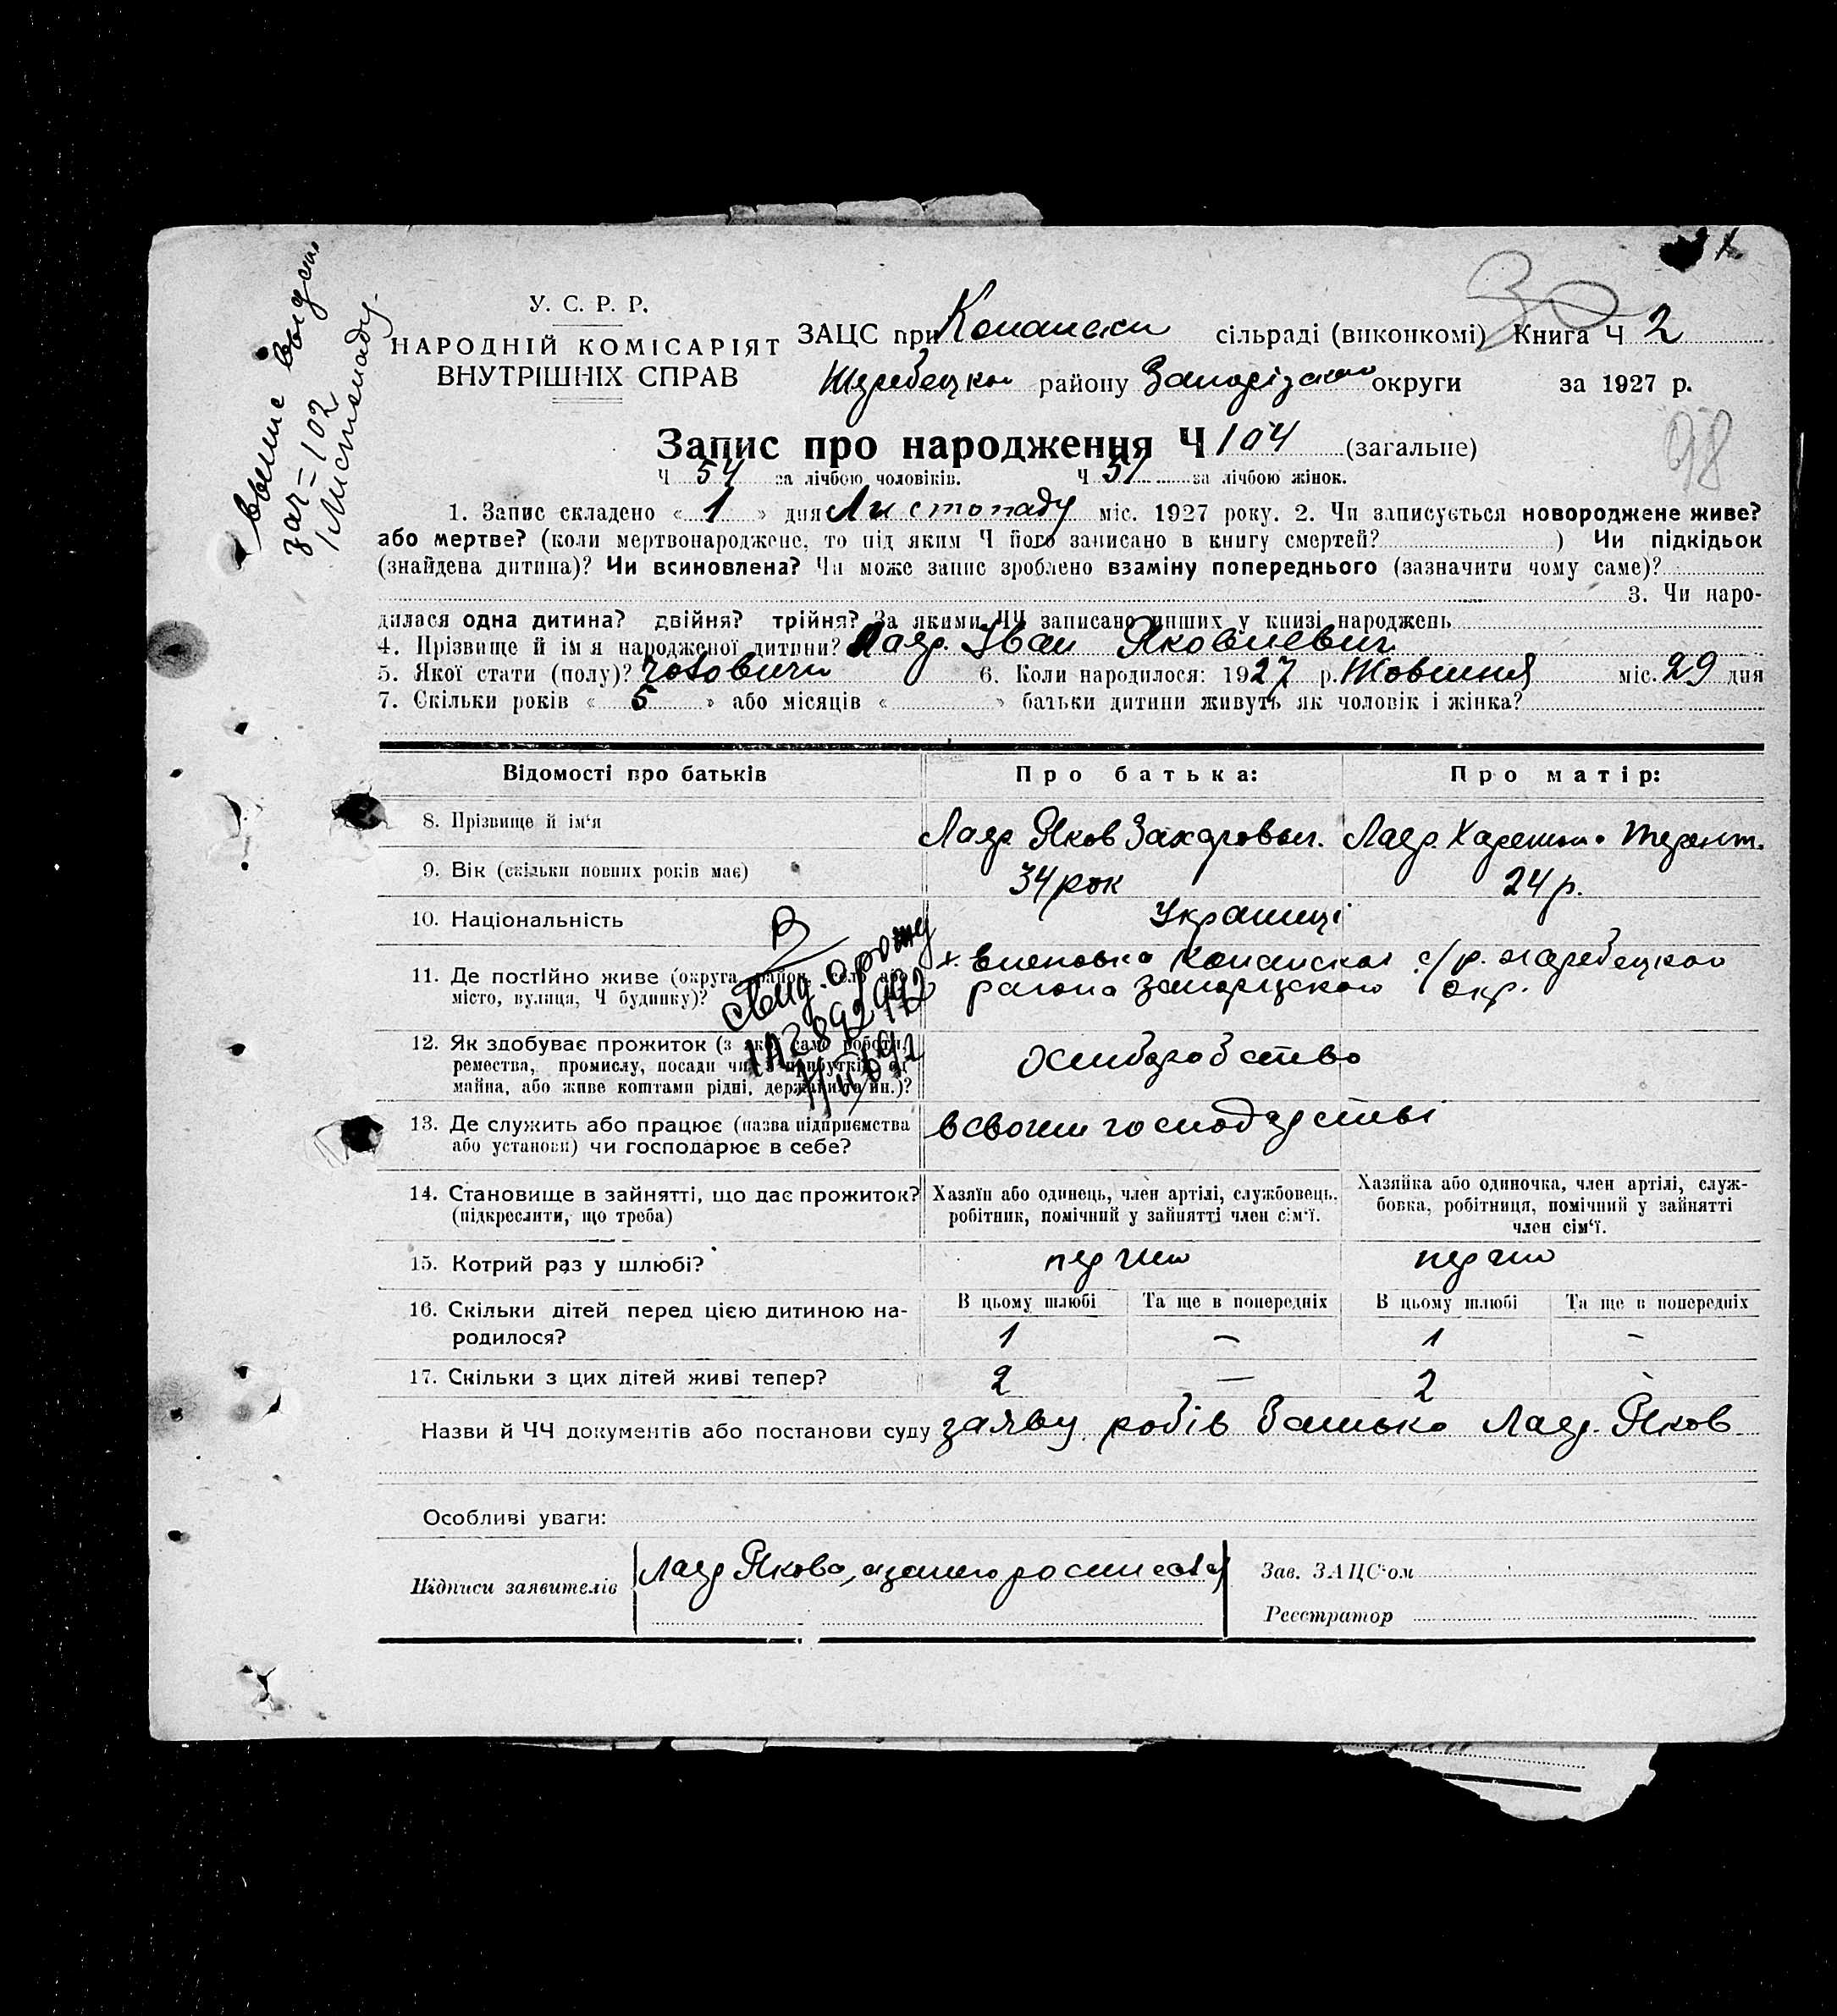 30
У. С. Р. Р.
НАРОДНІЙ КОМІСАРІЯТ
ВНУТРІШНІХ СПРАВ
ЗАЦС при Копански сільраді (виконкомі) Книга Ч 2
Жеребецког району Запорізского округи за 1927 р.
98
Запис про народження Ч 104 (загальне)
Ч 54 за лічбою чоловіків. Ч 51 за лічбою жінок.
зач = 102
Листопаду
1. Запис складено « 1 » дня Листопаду міс. 1927 року. 2. Чи записується новороджене живе?
або мертве? (коли мертвонароджене, то під яким Ч його записано в книгу смертей? ) Чи підкідьок
(знайдена дитина)? Чи всиновлена? Чи може запис зроблено взаміну попереднього (зазначити чому саме)?
3. Чи наро-
дилася одна дитина? двійня? трійня? За якими ЧЧ записано инших у книзі народжень
4. Прізвище й ім я народженої дитини? Лазр. Іван Яковлевич
5. Якої стати (полу)? 6. Коли народилося: 1927 р. Жовтня міс. 29 дня
7. Скільки років « 5 » або місяців « » батьки дитини живуть як чоловік і жінка?
Відомості про батьків Про батька: Про матір:
8. Прізвище й ім'я Яков Захарович.
9. Вік (скільки повних років має) 34 рок 24 р.
10. Національність Украинці
11. Де постійно живе (округа, район, село або
місто, вулиця, Ч будинку)?
с/р. жеребецкого
района запоріцкого окр.
12. Як здобуває прожиток (з якої само роботи,
ремества, промислу, посади чи з прибутків од
майна, або живе коштами рідні, держави та ин.)?
хлиборобство
13. Де служить або працює (назва підприємства
або установи) чи господарює в себе?
в своем господарстві
14. Становище в зайнятті, що дає прожиток?
(підкреслити, що треба)
Хазяїн або одинець, член артілі, службовець,
робітник, помічний у зайнятті член сім'ї.
Хазяйка або одиночка, член артілі, служ-
бовка, робітниця, помічний у зайнятті
член сім'ї.
15. Котрий раз у шлюбі?
16. Скільки дітей перед цією дитиною на-
родилося?
В цьому шлюбі Та ще в попередніх В цьому шлюбі Та ще в попередніх
1 – 1 –
17. Скільки з цих дітей живі тепер? 2 — 2
Назви й ЧЧ документів або постанови суду заяву робів батько Лазр. Яков
Особливі уваги:
Підписи заявителів
Зав. ЗАЦС'ом
Реєстратор